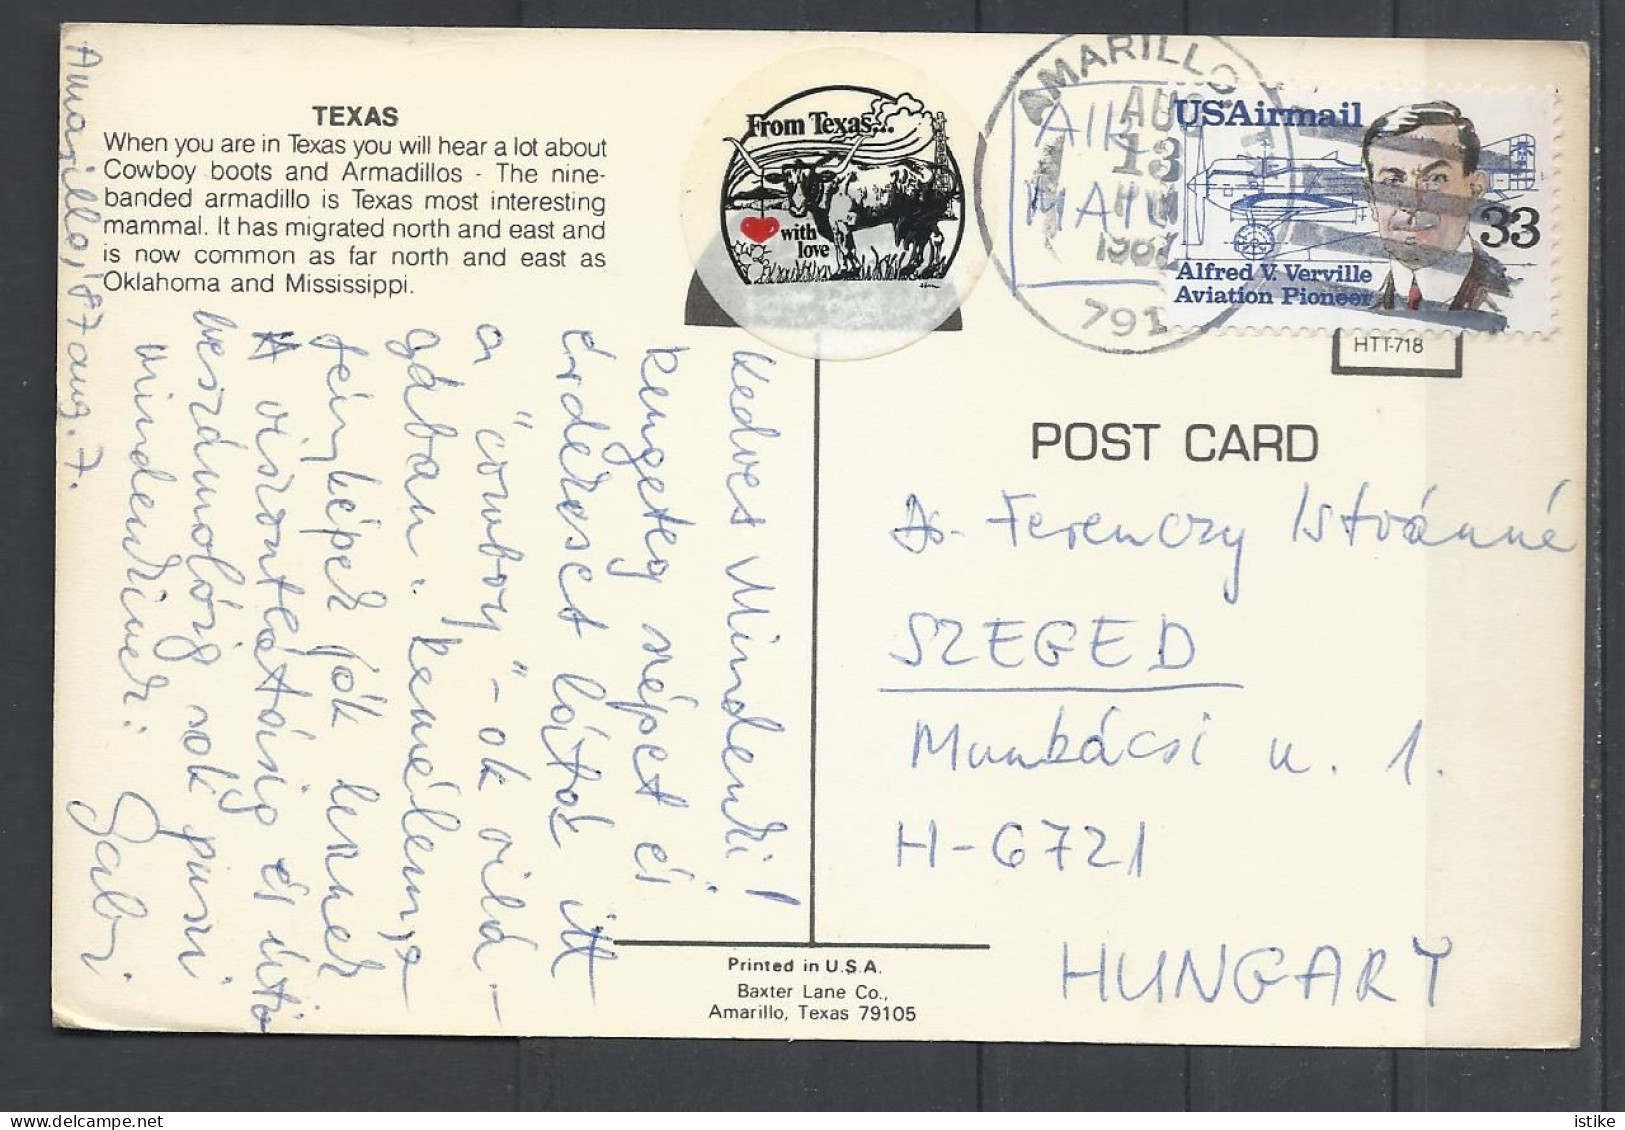 TEXAS
When you are in Texas you will hear a lot about
Cowboy boots and Armadillos - The nine-
banded armadillo is Texas most interesting
mammal. It has migrated north and east and
is now common as far north and east as
Oklahoma and Mississippi.
Amarillo, '87 aug. 7.
Kedves Mindenki!
Rengeteg szépet és
érdekeset látok itt
a "cowboy"-ok vilá-
gában: remélem, a
fényképek jók lesznek
A viszontlátásig és úti
beszámolóig sok puszi
mindenkinek:
Gabi
From Texas...
with
love
AMARILLO, T
AUG
13
PM
1987
791
AIR
MAIL
USAirmail
33
Alfred V. Verville
Aviation Pioneer
HTT-718
POST CARD
Ferenczy Istvánné
SZEGED
Munkácsi u. 1.
H-6721
HUNGARY
Printed in U.S.A.
Baxter Lane Co.,
Amarillo, Texas 79105
istike